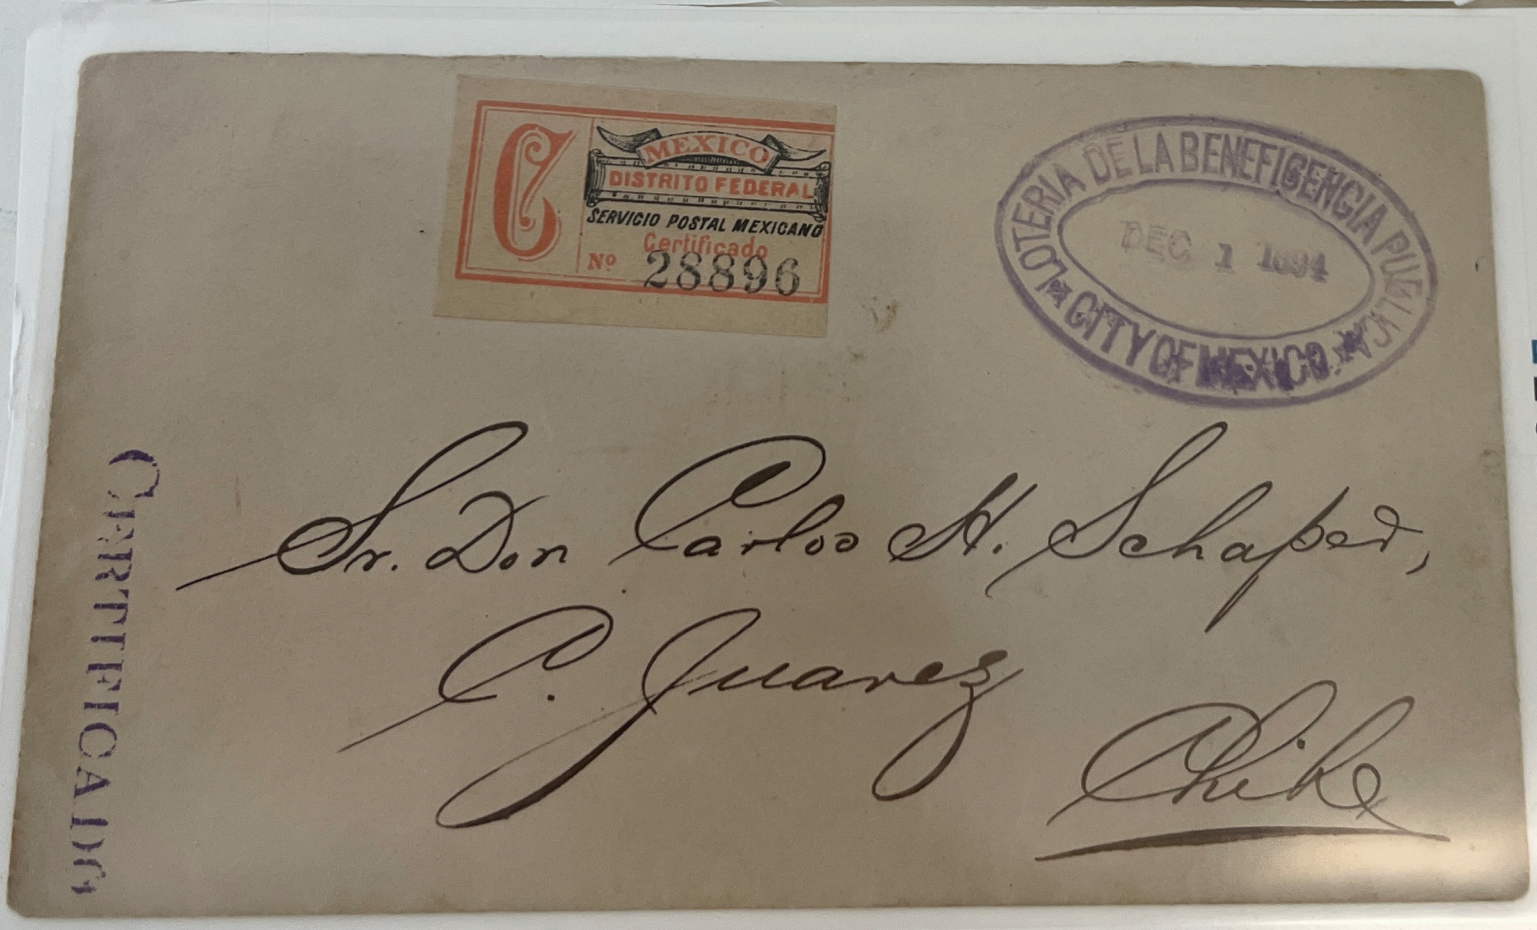 C
MEXICO
DISTRITO FEDERAL
SERVICIO POSTAL MEXICANO
Certificado
Nº 28896
LOTERIA DE LA BENEFICENCIA PUBLICA
DEC 1 1894
CITY OF MEXICO
CERTIFICADO
Sr. Don Carlos H. Schaper,
C. Juarez
Chih